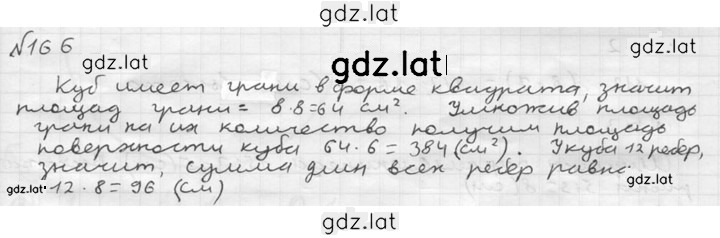 gdz.lat
№166
gdz.lat
gdz.lat
Куб имеет грани в форме квадрата, значит
площад грани = 8·8=64 см². Умножив площадь
грани на их количество получим площадь
поверхности куба 64·6=384(см²). У куба 12 ребер,
значит, сумма длин всех ребер равна
gdz.lat 12·8=96 (см)
gdz.lat
gdz.lat